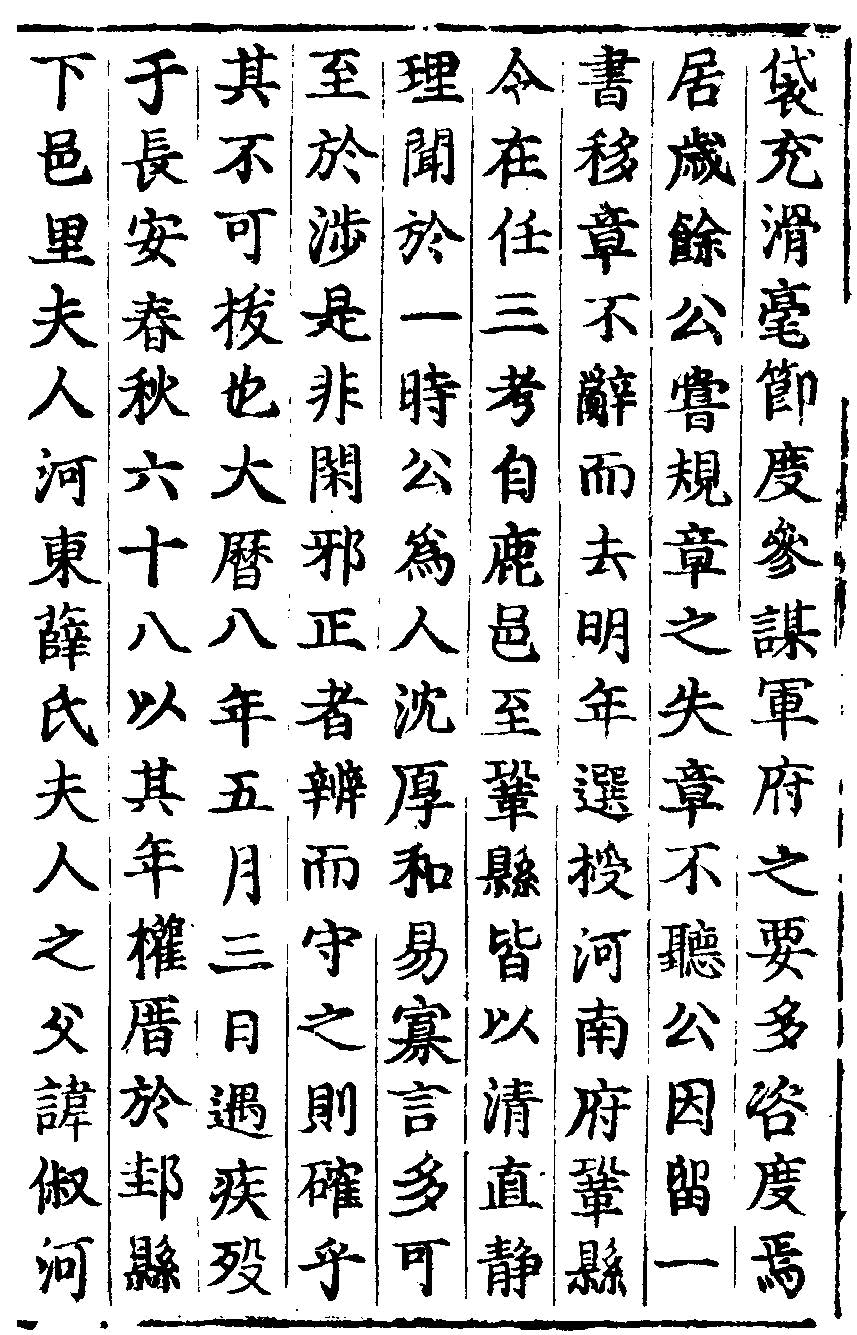 袋充滑亳節度參謀軍府之要多咨度焉
居歲餘公嘗規章之失章不聽公因留一
書移章不辭而去明年選授河南府鞏縣
令在任三考自鹿邑至鞏縣皆以清直静
理聞於一時公爲人沈厚和易寡言多可
至於涉是非閑邪正者辨而守之則確乎
其不可拔也大曆八年五月三日遇疾殁
于長安春秋六十八以其年權厝於邽縣
下邑里夫人河東薛氏夫人之父諱俶河